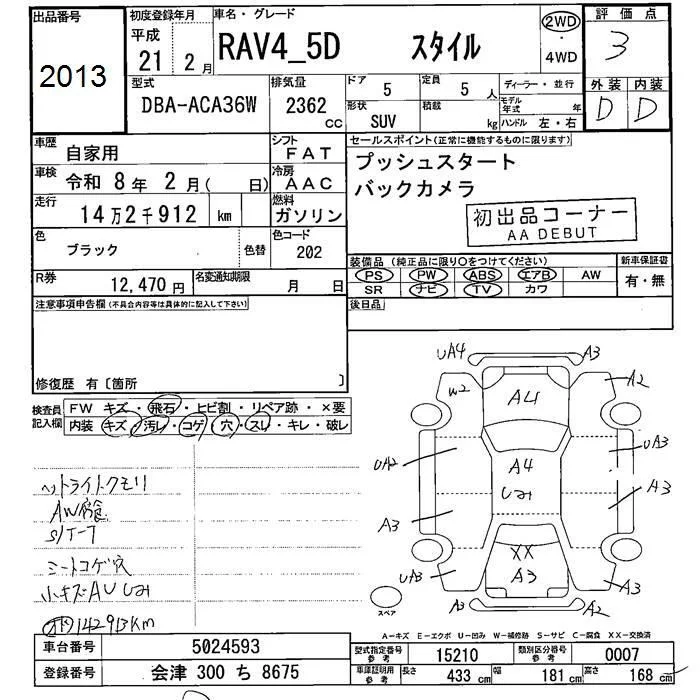 出品番号
2013
初度登録年月
平成
21 2月
車名・グレード
RAV4_5D スタイル
2WD
・
4WD
評価点
3
型式
DBA-ACA36W
排気量
2362
cc
ドア
5
定員
5 人
形状
SUV
積載
kg
ディーラー・並行
モデル
年式 年
ハンドル 左・右
外装 内装
D D
車歴
自家用
シフト
FAT
車検
令和 8年 2月( 日)
冷房
AAC
走行
14万2千912 km
燃料
ガソリン
色
ブラック
色替
色コード
202
R券
12,470 円
名変通知期限
月 日
セールスポイント(正常に機能するものに限ります)
プッシュスタート
バックカメラ
初出品コーナー
AA DEBUT
装備品 (純正品に限り○をつけてください)
PS PW ABS エアB AW
SR ナビ TV カワ
新車保証書
有・無
注意事項申告欄(不具合内容等は具体的に記入して下さい)
後日品
修復歴 有〔箇所 〕
検査員
記入欄
FW キズ・飛石・ヒビ割・リペア跡・×要
内装 キズ・汚レ・コゲ・穴・スレ・キレ・破レ
ヘットライトクモリ
AW腐食
S/T-7
シートコゲ穴
小キズAU凹
142913Km
UA4 A3
W2 A4 A2
UA2 A4 UA3
A3 A3
XX
UA3 A3 A3
A3 A2
スペア
A-キズ E-エクボ U-凹み W-補修跡 S-サビ C-腐食 XX-交換済
車台番号
5024593
型式指定番号
参考
15210
類別区分番号
参考
0007
登録番号
会津 300 ち 8675
車庫証明用
参考
長さ
433 cm
幅
181 cm
高さ
168 cm